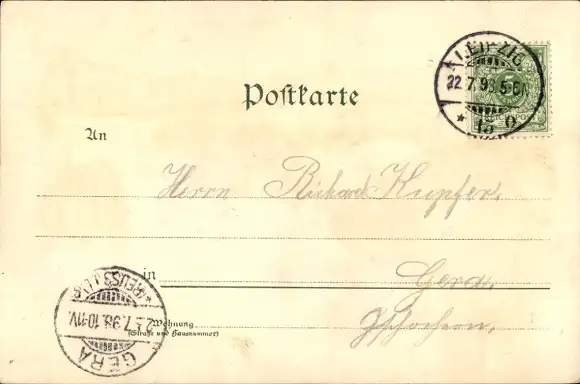 LEIPZIG
22.7.98.5-6N
* 13 o
Postkarte
An
Herrn Richard Kupfer.
in Gera,
Wohnung
(Straße und Hausnummer)
(REUSS J.L.)
7.98.10-11V.
GERA